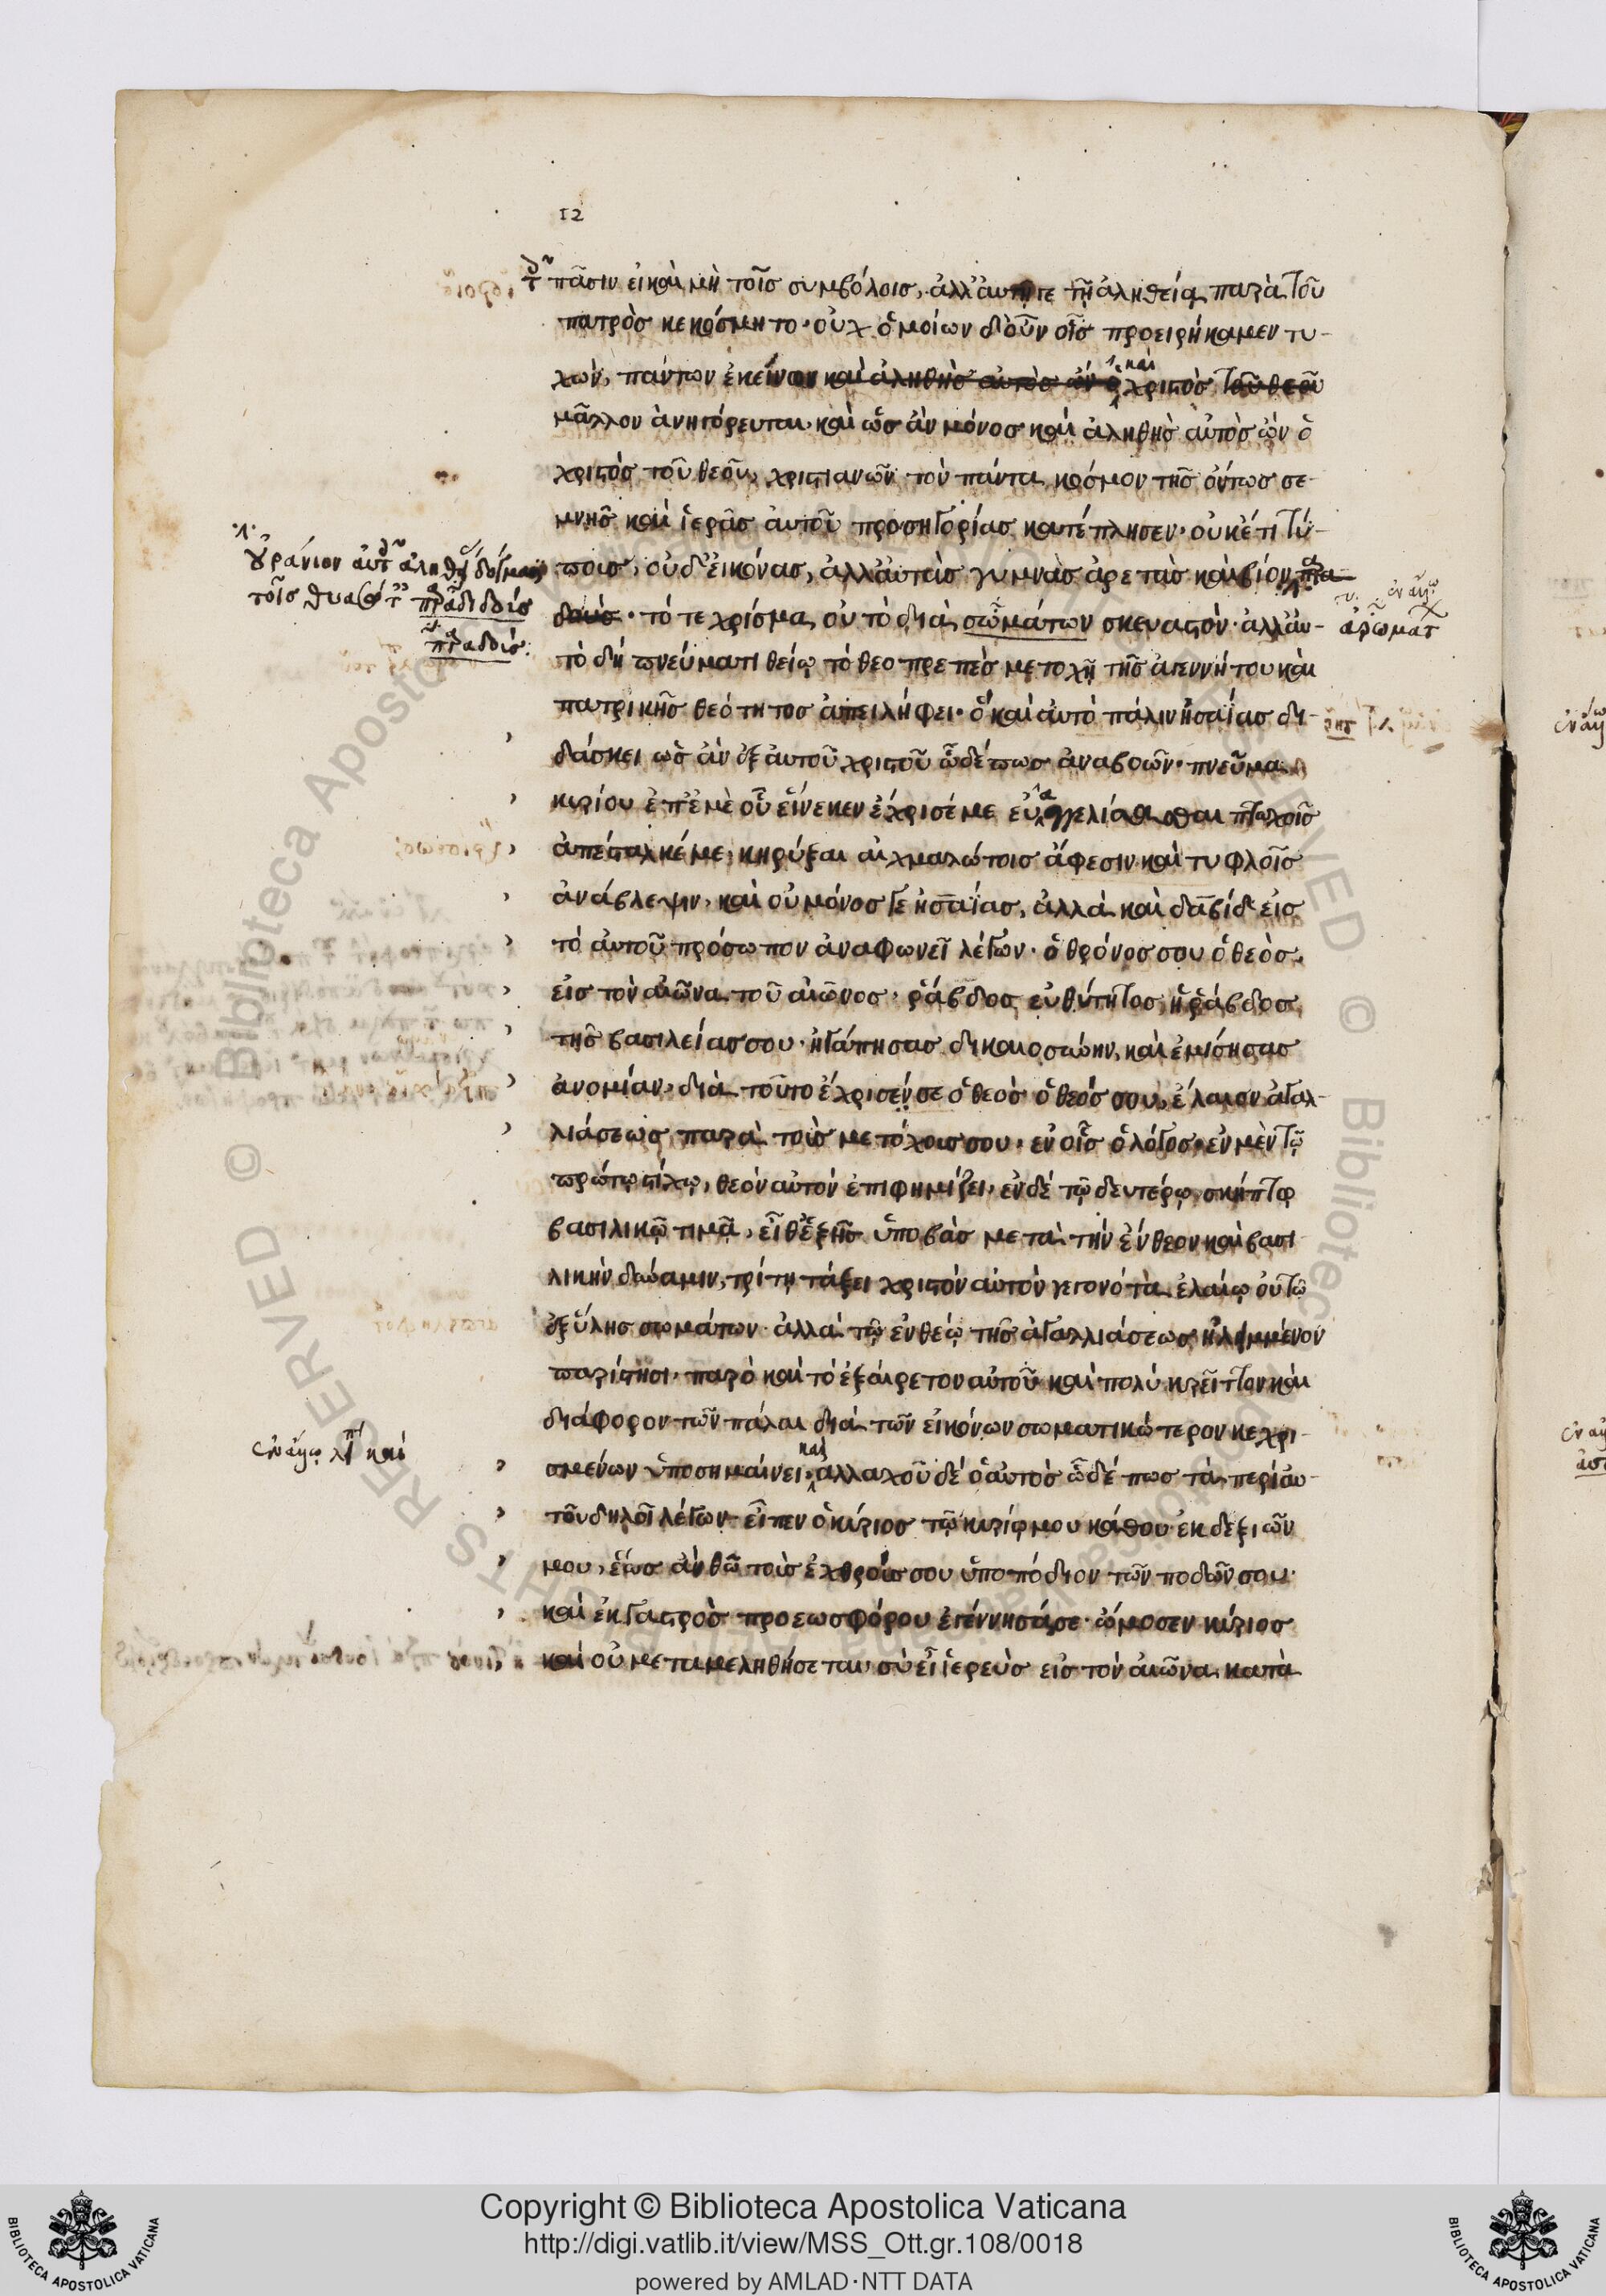 12
πᾶσιν εἰ καὶ μὴ τοῖς συμβόλοις, ἀλλ' αὐτῇ τε τῇ ἀληθείᾳ παρὰ τοῦ
πατρὸς κεκόσμητο· οὐχ ὁμοίων δ' οὖν οἷς προειρήκαμεν τυ-
χών, πάντων ἐκείνων καὶ ἀληθὴς αὐτὸς ὢν ὁ καὶ χριστὸς τοῦ θεοῦ
μᾶλλον ἀνηγόρευται· καὶ ὡς ἂν μόνος καὶ ἀληθὴς αὐτὸς ὢν ὁ
χριστὸς τοῦ θεοῦ, χριστιανῶν τὸν πάντα κόσμον τῆς ὄντως σε-
μνῆς καὶ ἱερᾶς αὐτοῦ προσηγορίας κατέπλησεν· οὐκέτι τύ-
ποις, οὐδ' εἰκόνας, ἀλλ' αὐτὰς γυμνὰς ἀρετὰς καὶ βίον παρα-
δούς· τό τε χρίσμα, οὐ τὸ διὰ σωμάτων σκευαστὸν· ἀλλ' αὐ-
τὸ δὴ πνεύματι θείῳ τὸ θεοπρεπὲς μετοχῇ τῆς ἀγεννήτου καὶ
πατρικῆς θεότητος ἀπειλήφει· ὃ καὶ αὐτὸ πάλιν ἡσαΐας δι-
δάσκει ὡς ἂν ἐξ αὐτοῦ χριστοῦ ὧδέ πως ἀναβοῶν· πνεῦμα
κυρίου ἐπ' ἐμὲ οὗ εἵνεκεν ἔχρισέ με εὐαγγελίσασθαι πτωχοῖς
ἀπέσταλκέ με, κηρύξαι αἰχμαλώτοις ἄφεσιν καὶ τυφλοῖς
ἀνάβλεψιν, καὶ οὐ μόνος γε ἡσαΐας, ἀλλὰ καὶ δαβὶδ εἰς
τὸ αὐτοῦ πρόσωπον ἀναφωνεῖ λέγων· ὁ θρόνος σου ὁ θεὸς,
εἰς τὸν αἰῶνα τοῦ αἰῶνος· ῥάβδος εὐθύτητος, ἡ ῥάβδος
τῆς βασιλείας σου· ἠγάπησας δικαιοσύνην, καὶ ἐμίσησας
ἀνομίαν· διὰ τοῦτο ἔχρισέν σε ὁ θεὸς ὁ θεός σου, ἔλαιον ἀγαλ-
λιάσεως, παρὰ τοὺς μετόχους σου· ἐν οἷς ὁ λόγος· ἐν μὲν τῷ
πρώτῳ στίχῳ, θεὸν αὐτὸν ἐπιφημίζει· ἐν δὲ τῷ δευτέρῳ, σκήπτρῳ
βασιλικῷ τιμᾷ, εἶθ' ἑξῆς ὑποβὰς μετὰ τὴν ἔνθεον καὶ βασι-
λικὴν δύναμιν, τρίτῃ τάξει χριστὸν αὐτὸν γεγονότα ἐλαίῳ οὐ τῷ
ἐξ ὕλης σωμάτων· ἀλλὰ τῷ ἐνθέῳ τῆς ἀγαλλιάσεως ἠλειμμένον
παρίστησι· παρὸ καὶ τὸ ἐξαίρετον αὐτοῦ καὶ πολὺ κρεῖττον καὶ
διάφορον τῶν πάλαι διὰ τῶν εἰκόνων σωματικώτερον κεχρι-
σμένων ὑποσημαίνει· καὶ ἀλλαχοῦ δὲ ὁ αὐτὸς ὧδέ πως τὰ περὶ αὐ-
τοῦ δηλοῖ λέγων· εἶπεν ὁ κύριος τῷ κυρίῳ μου κάθου ἐκ δεξιῶν
μου, ἕως ἂν θῶ τοὺς ἐχθρούς σου ὑποπόδιον τῶν ποδῶν σου·
καὶ ἐκ γαστρὸς προεωσφόρου ἐγέννησά σε· ὤμοσεν κύριος
καὶ οὐ μεταμεληθήσεται σὺ εἶ ἱερεὺς εἰς τὸν αἰῶνα κατὰ
Copyright © Biblioteca Apostolica Vaticana
http://digi.vatlib.it/view/MSS_Ott.gr.108/0018
powered by AMLAD·NTT DATA